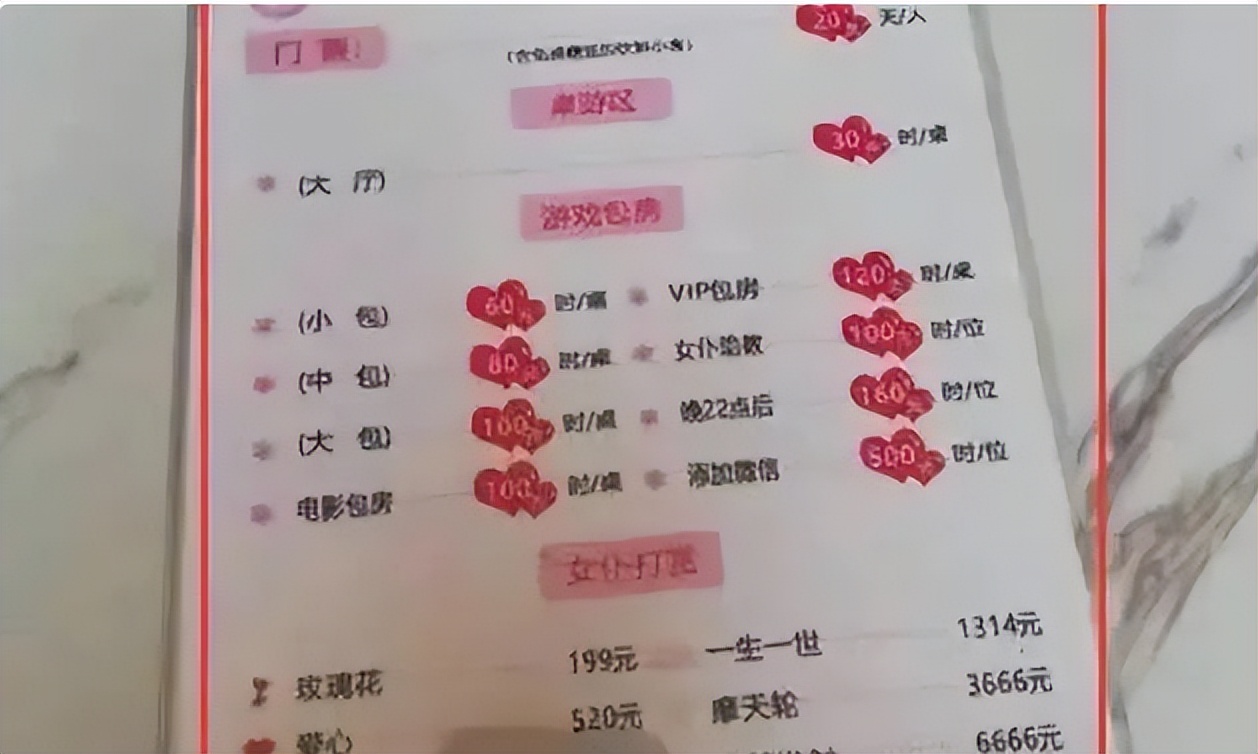 门票:
20 天/人
桌游区
(大 厅) 30 时/桌
游戏包房
(小 包) 60 时/桌 VIP包房 120 时/桌
(中 包) 80 时/桌 女仆 100 时/位
(大 包) 100 时/桌 晚22点后 160 时/位
电影包房 100 时/桌 添加微信 500 时/位
女仆打赏
玫瑰花 199元 一生一世 1314元
爱心 520元 摩天轮 3666元
6666元